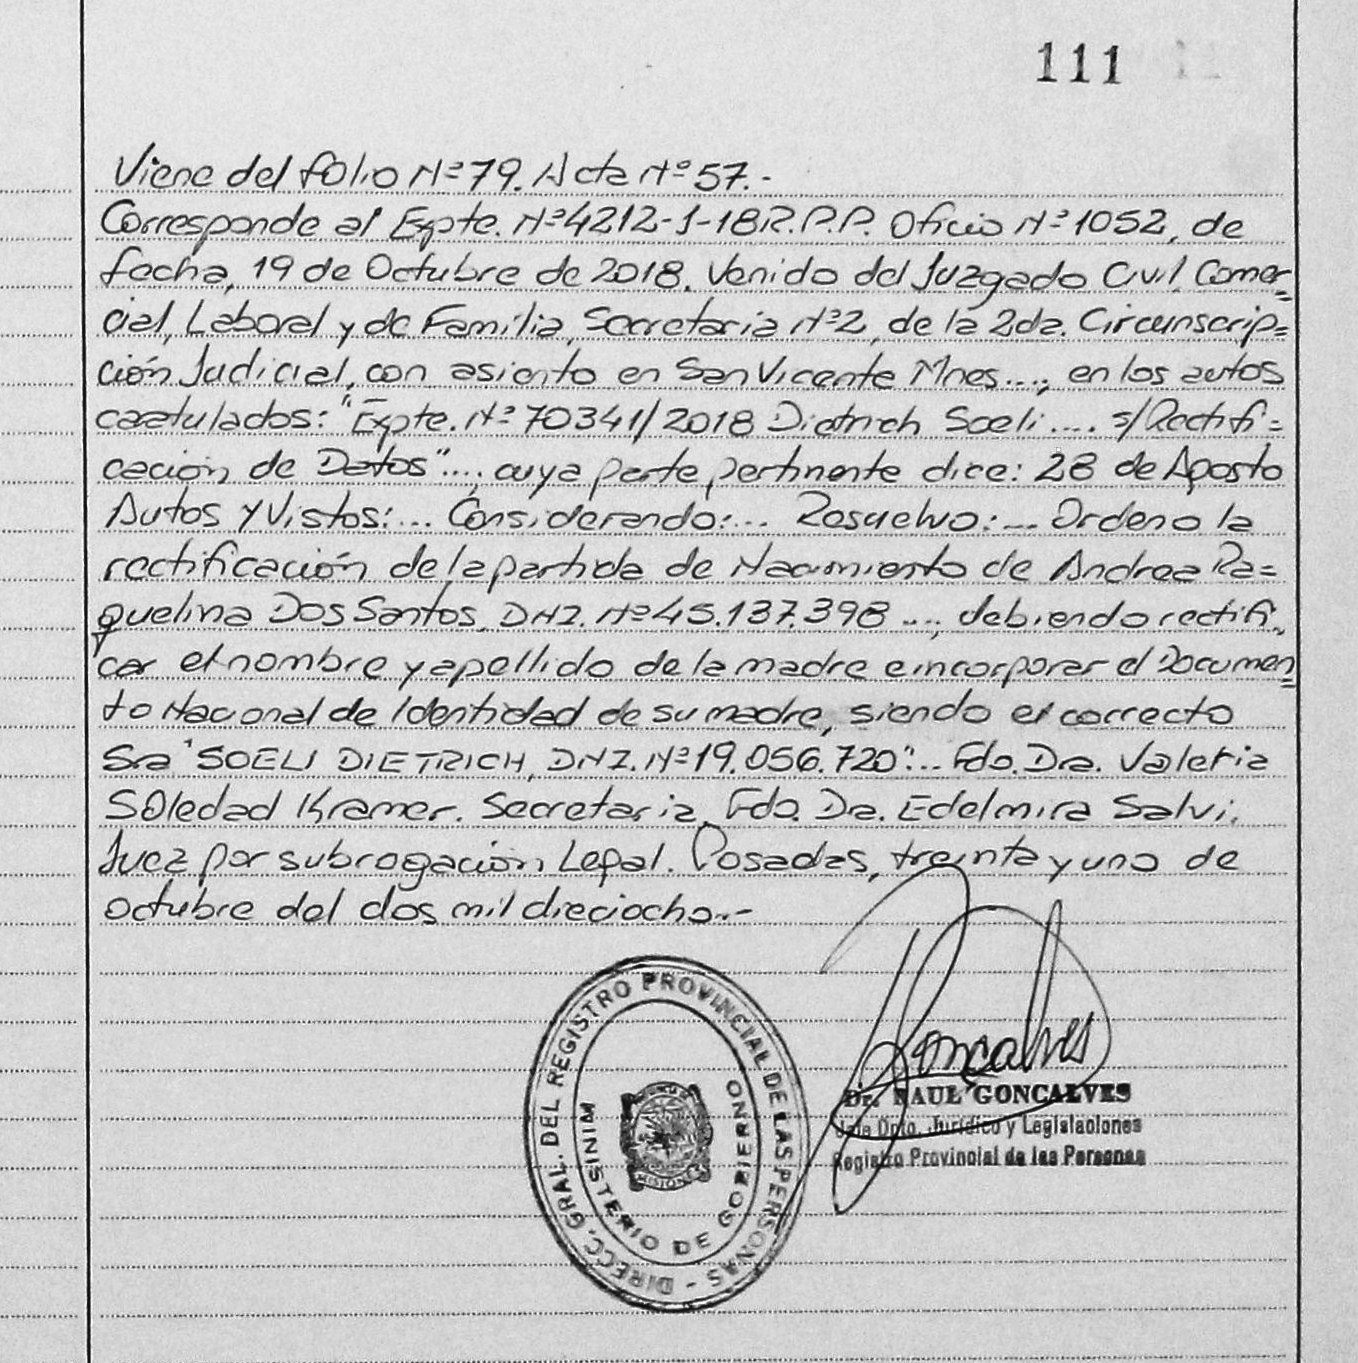 111
Viene del folio Nº 79. Acta Nº 57.-
Corresponde al Expte. Nº 4212-J-18 R.P.P. Oficio Nº 1052, de
fecha, 19 de Octubre de 2018. Venido del Juzgado Civil, Comer=
cial, Laboral y de Familia, Secretaría Nº 2, de la 2da. Circunscrip=
ción Judicial, con asiento en San Vicente Mnes...; en los autos
caratulados: "Expte. Nº 70341/2018 Dietrich Soeli.... s/Rectifi=
cación de Datos"..., cuya parte pertinente dice: 28 de Agosto
Autos y Vistos:... Considerando:... Resuelvo:... Ordeno la
rectificación de la partida de Nacimiento de Andrea Ra=
quelina Dos Santos, DNI. Nº 45.137.398 ..., debiendo rectifi=
car el nombre y apellido de la madre e incorporar el Documen=
to Nacional de Identidad de su madre, siendo el correcto
Sra "SOELI DIETRICH, DNI. Nº 19.056.720".. Fdo. Dra. Valeria
Soledad Kramer. Secretaria. Fdo. Dra. Edelmira Salvi.
Juez por subrogación Legal. Posadas, treinta y uno de
octubre del dos mil dieciocho.-
DIRECC. GRAL. DEL REGISTRO PROVINCIAL DE LAS PERSONAS -
MINISTERIO DE GOBIERNO
MISIONES
Goncalves
Dr. RAUL GONCALVES
Jefe Dpto. Jurídico y Legislaciones
Registro Provincial de las Personas